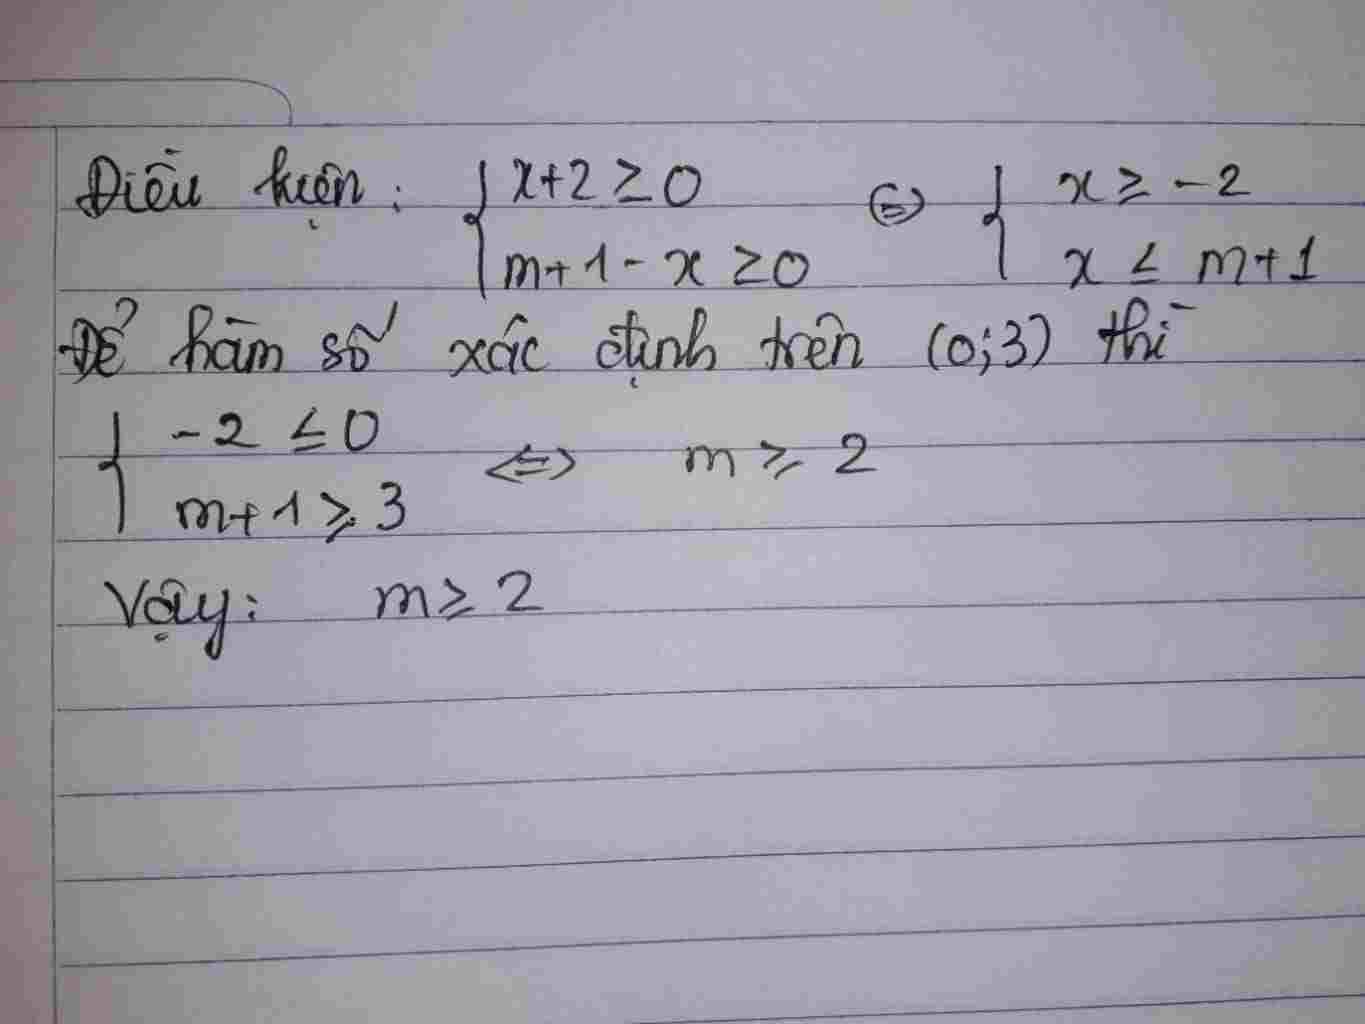 Điều kiện: { x+2 ≥ 0 ⇔ { x ≥ -2
m+1-x ≥ 0 x ≤ m+1
Để hàm số xác định trên (0;3) thì
{ -2 ≤ 0
m+1 ≥ 3 ⇔ m ≥ 2
Vậy: m ≥ 2